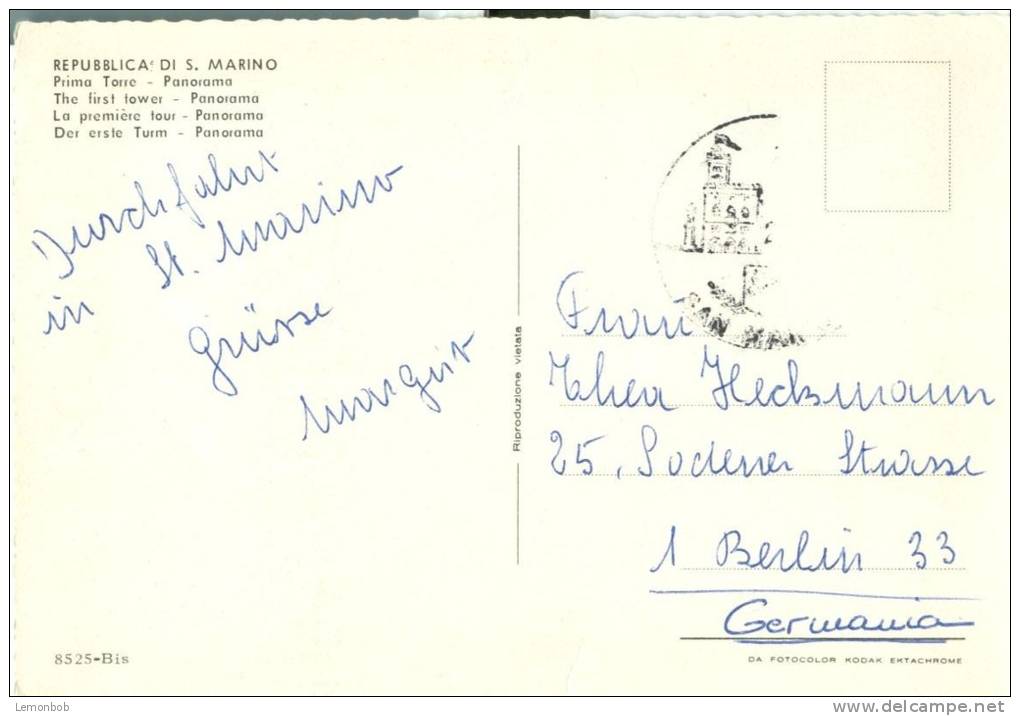 REPUBBLICA DI S. MARINO
Prima Torre - Panorama
The first tower - Panorama
La première tour - Panorama
Der erste Turm - Panorama
Durchfahrt
in St. Marino
Grüsse
Margrit
Riproduzione vietata
SAN MAR
Frau
Thea Heckmann
25, Sodener Strasse
1 Berlin 33
Germania
8525-Bis
DA FOTOCOLOR KODAK EKTACHROME
Lemonbob
www.delcampe.net